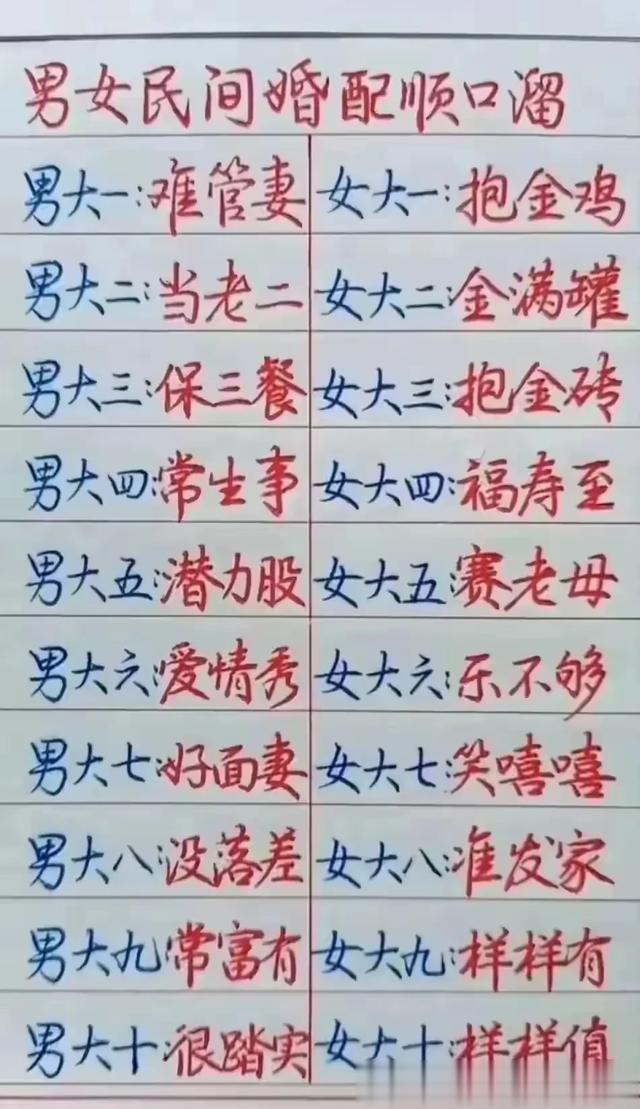 男女民间婚配顺口溜
男大一:难管妻 女大一:抱金鸡
男大二:当老二 女大二:金满罐
男大三:保三餐 女大三:抱金砖
男大四:常生事 女大四:福寿至
男大五:潜力股 女大五:赛老母
男大六:爱情秀 女大六:乐不够
男大七:好面妻 女大七:笑嘻嘻
男大八:没落差 女大八:准发家
男大九:常富有 女大九:样样有
男大十:很踏实 女大十:样样值